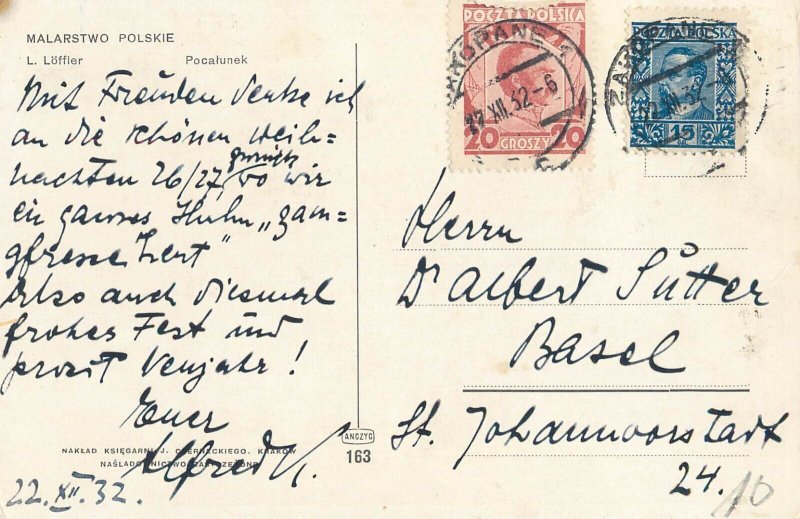 MALARSTWO POLSKIE
L. Löffler Pocałunek
Mit Freuden denke ich
an die schönen Weih-
nachten 26/27, wo wir
ein ganzes Huhn „zam-
gfresse hent"
Also auch diesmal
frohes Fest und
prosit Neujahr!
Euer
Alfred K.
22. XII. 32.
NAKŁAD KSIĘGARNI J. CZERNECKIEGO, KRAKÓW
NAŚLADOWNICTWO ZASTRZEŻONE
ANCZYC
163
POCZTA POLSKA
20 GROSZY 20
ZAKOPANE 1
22 XII. 32-6
POCZTA POLSKA
15
ZAKOPANE
22 XII. 32
Herrn
Dr Albert Sutter
Basel
St. Johannvorstadt
24.
10